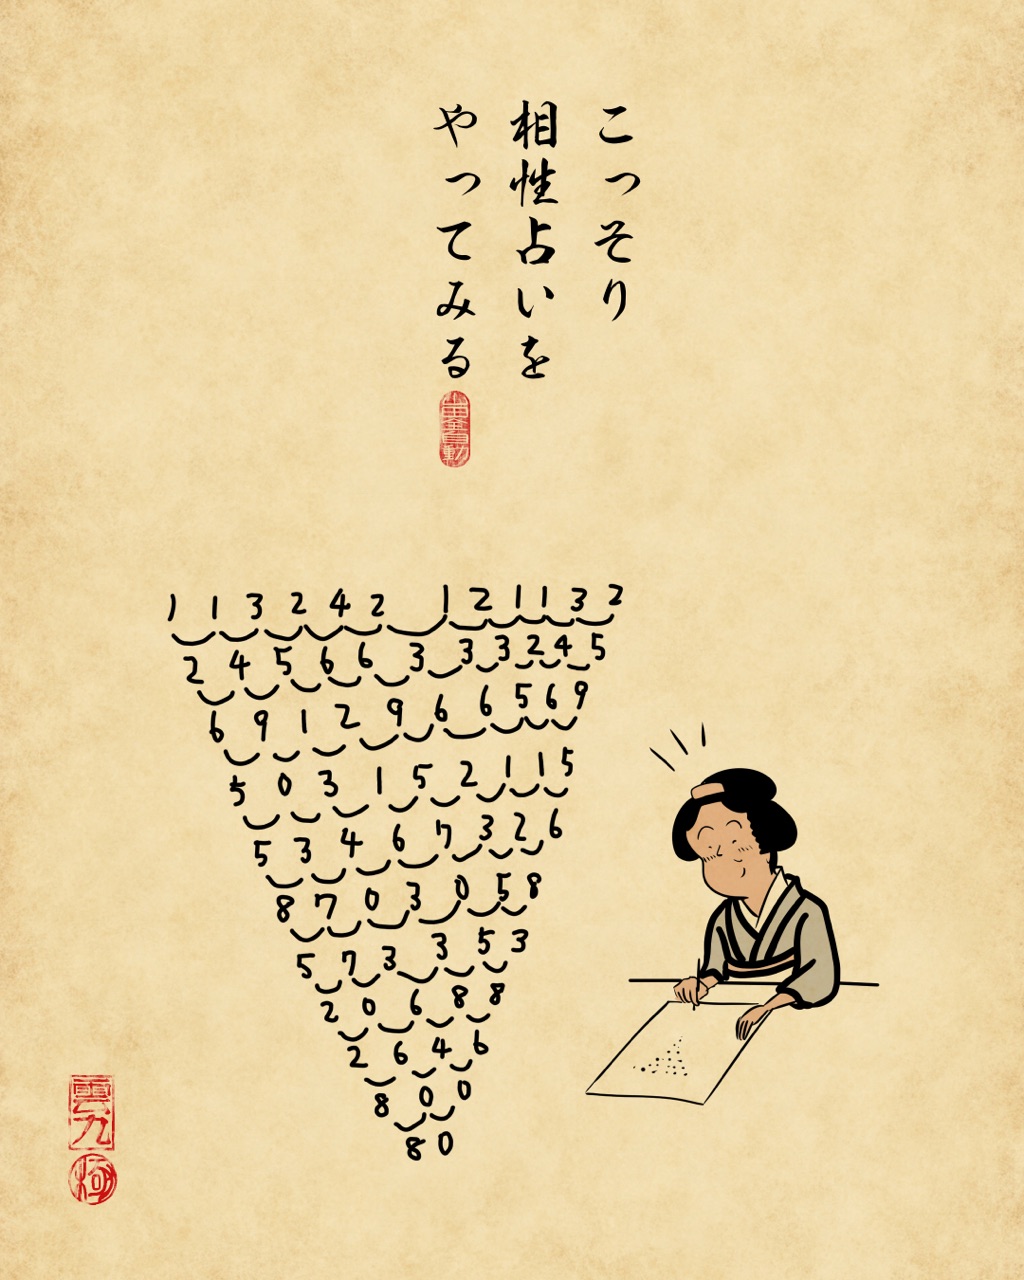 こっそり
相性占いを
やってみる
1 1 3 2 4 2 1 2 1 1 3 2
2 4 5 6 6 3 3 3 2 4 5
6 9 1 2 9 6 6 5 6 9
5 0 3 1 5 2 1 1 5
5 3 4 6 7 3 2 6
8 7 0 3 0 5 8
5 7 3 3 5 3
2 0 6 8 8
2 6 4 6
8 0 0
8 0